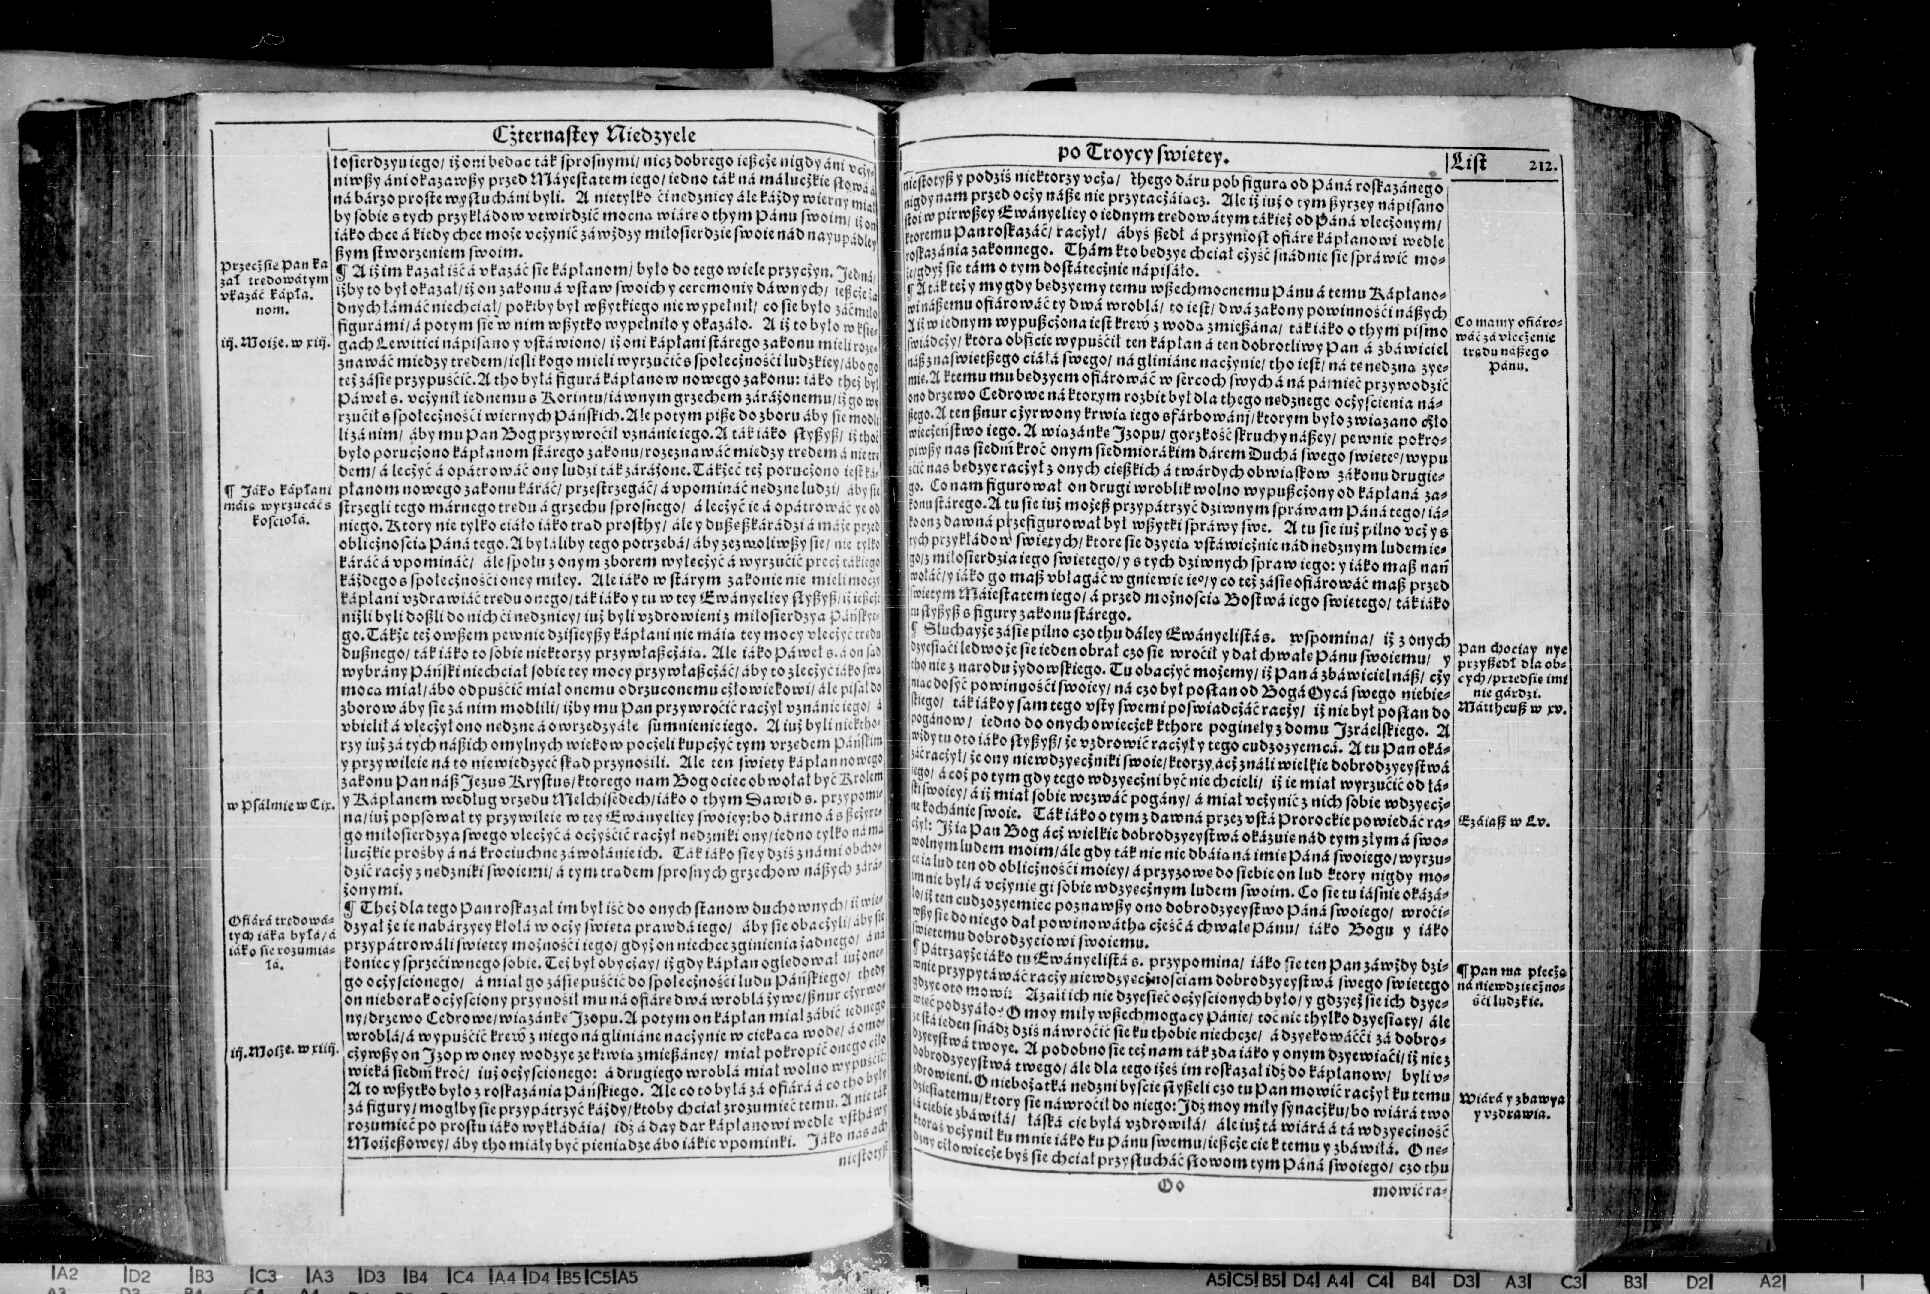 Cżternastey Niedzyele
losierdzyu iego/ iż oni będąc ták sprosnymi/ nicz dobrego ieszcże nigdy áni vcży-
niwszy áni okazawszy przed Máyestatem iego/ iedno ták ná máluczkie słowá á
ná bárzo proste wysłucháni byli. A nietylko ći nędznicy ále káżdy wierny miał
by sobie s tych przykłádow vtwirdzić mocną wiárę o thym Pánu swoim/ iż on
iáko chce á kiedy chce może vcżynić záwżdzy miłosierdzie swoie nád nayupádley
szym stworzeniem swoim.
Przecżsie Pan ka
zał trędowátym
vkázáć kápła.
nom.
¶ A iż im kazał iść á vkázáć sie kápłanom/ było do tego wiele przycżyn. Jedná/
iżby to był okazał/ iż on zakonu á vstaw swoich y ceremoniy dawnych/ ieszcże żá
dnych łamáć niechciał/ pokiby był wszytkiego nie wypełnił/ co sie było záćmiło
figurámi/ á potym sie w nim wszytko wypełniło y okazáło. A iż to było w kśię-
iij. Moiże. w xiij.
gach Lewitici nápisano y vstáwiono/ iż oni kápłani stárego zakonu mieli roze-
znawáć miedzy trędem/ iesli kogo mieli wyrzućić s społecżnośći ludzkiey/ ábo go
też zásie przypuśćić. A tho byłá figurá kápłanow nowego zakonu: iáko theż był
Páweł s. vcżynił iednemu s Korintu/ iáwnym grzechem záráżonemu/ iż go wy
rzućił s społecżnośći wiernych Páńskich. Ale potym pisze do zboru áby sie modli
li zá nim/ áby mu Pan Bog przywroćił vznánie iego. A ták iáko słyszysz/ iż thoć
było porucżono kápłanom stárego zakonu/ rozeznawáć miedzy trędem á nie trę
dem/ á lecżyć á opátrowáć ony ludzi ták záráżone. Tákżeć też porucżono iest ká-
¶ Jáko kápłani
máią wyrzucáć s
kośćiołá.
płanom nowego zakonu káráć/ przestrzegáć/ á vpomináć nędzne ludzi/ áby sie
strzegli tego márnego trędu á grzechu sprosnego/ á lecżyć ie á opátrowáć ye od
niego. Ktory nie tylko ciáło iáko trąd prosthy/ ále y duszę szkáradzi á máże przed
oblicżnoscią Páná tego. A byłáliby tego potrzebá/ áby zezwoliwszy sie/ nie tylko
káráć á vpomináć/ ále społu z onym zborem wylecżyć á wyrzućić precż tákiego
káżdego s społecżnośći oney miłey. Ale iáko w stárym zakonie nie mieli moczy
kápłani vzdrawiáć trędu onego/ ták iáko y tu w tey Ewányeliey słyszysz/ iż ieszcże
niżli byli doszli do nich ći nędznicy/ iuż byli vzdrowieni z miłosierdzya Páńskye-
go. Tákże też owszem pewnie dzisieyszy kápłani nie máią tey mocy vlecżyć trędu
dusznego/ ták iáko to sobie niektorzy przywłaszcżáią. Ale iáko Páweł s. á on sąd
wybrány Páński niechciał sobie tey mocy przywłaszcżáć/ áby to zlecżyć iáko swą
mocą miał/ ábo odpuśćić miał onemu odrzuconemu cżłowiekowi/ ále pisał do
zborow áby sie zá nim modlili/ iżby mu Pan przywroćić racżył vznánie iego/ á
vbielił á vlecżył ono nędzne á owrzedzyáłe sumnienie iego. A iuż byli niektho-
rzy iuż zá tych nászych omylnych wiekow pocżęli kupcżyć tym vrzędem Páńskim
y przywileie ná to niewiedzyeć skąd przynosili. Ale ten swięty kápłan nowego
zakonu Pan nász Jezus Krystus/ ktorego nam Bog ociec obwołał być Krolem
w Psálmie w Cix.
y Kápłanem według vrzędu Melchisedech/ iáko o thym Dawid s. przypomi-
na/ iuż popsował ty przywileie w tey Ewányeliey swoiey: bo darmo á s szcżyre-
go miłosierdzya swego vlecżyć á ocżyśćić racżył nędzniki ony/ iedno tylko ná má
lucżkie prośby á ná krociuchne záwołánie ich. Ták iáko sie y dziś z námi obcho-
dzić racży z nędzniki swoiemi/ á tym trądem sprosnych grzechow nászych zárá-
żonymi.
Ofiárá trędowá-
tych iáka byłá/ á
iáko sie rozumiá-
łá.
¶ Theż dla tego Pan roskazał im był iść do onych stanow duchownych/ iż wie-
dzyał że ie nabárzyey kłolá w ocży swięta prawdá iego/ áby sie obacżyli/ áby sie
przypátrowáli swiętey możnośći iego/ gdyż on niechce zginienia żadnego/ á ná
koniec y sprzećiwnego sobie. Też był obycżay/ iż gdy kápłan oględował iuż one-
go ocżyscionego/ á miał go zásie puśćić do społecżnośći ludu Páńskiego/ thedy
on nieborak ocżysciony przynosił mu ná ofiárę dwá wroblá żywe/ sznur cżyrwo-
ny/ drzewo Cedrowe/ wiązánkę Jzopu. A potym on kápłan miał zábić iednego
wroblá/ á wypuśćić krew z niego ná gliniáne nacżynie w ciekącą wodę/ á omo-
iij. Moiże. w xiiij.
cżywszy on Jzop w oney wodzye ze krwią zmieszáney/ miał pokropić onego cżło
wieká siedm kroć/ iuż ocżyscionego: á drugiego wroblá miał wolno wypuśćić.
A to wszytko było z roskazánia Páńskiego. Ale co to byłá zá ofiárá á co tho były
zá figury/ mogłby sie przypátrzyć káżdy/ ktoby chciał zrozumieć temu. A nie ták
rozumieć po prostu iáko wykłádáią/ idź á day dar kápłanowi wedle vsthawy
Moiżeszowey/ áby tho miáły być pieniądze ábo iákie vpominki. Jáko nas ách
niestotysz
po Troycy swiętey.
List 212.
niestotysz y podziś niektorzy vcżą/ thego dáru pod figurą od Páná roskazánego
nigdy nam przed ocży násze nie przytacżáiącz. Ale iż iuż o tym szyrzey nápisano
stoi w pirwszey Ewányeliey o iednym trędowátym tákież od Páná vlecżonym/
ktoremu Pan roskazáć/ racżył/ ábyś szedł á przyniosł ofiárę kápłanowi wedle
roskazánia zakonnego. Thám kto będzye chciał cżyść snádnie sie spráwić mo-
że/ gdyż sie tám o tym dostátecżnie nápisáło.
Co mamy ofiáro-
wáć zá vlecżenie
trądu nászego
Pánu.
¶ A ták też y my gdy będzyemy temu wszechmocnemu Pánu á temu Kápłano-
wi nászemu ofiárowáć ty dwá wroblá/ to iest/ dwá zakony powinnośći nászych
A iż w iednym wypuszcżona iest krew z wodą zmieszána/ ták iáko o thym pismo
swiádcży/ ktorą obficie wypuśćił ten kápłan á ten dobrotliwy Pan á zbáwiciel
nász z naswiętszego ciáłá swego/ ná gliniáne nacżynie/ tho iest/ ná tę nędzną zye-
mię. A ktemu mu będzyem ofiárowáć w sercoch swych á ná pámięć przywodzić
ono drzewo Cedrowe ná ktorym rozbit był dla thego nędznego ocżyścienia ná-
szego. A ten sznur cżyrwony krwią iego sfárbowány/ ktorym było związano cżło
wiecżeństwo iego. A wiązánkę Jzopu/ gorzkość skruchy nászey/ pewnie pokro-
piwszy nas siedm kroć onym siedmiorákim dárem Duchá swego swięte°/ wypu
śćić nas będzye racżył z onych cieszkich á twárdych obwiąskow zakonu drugie-
go. Co nam figurował on drugi wroblik wolno wypuszcżony od kápłaná za-
konu stárego. A tu sie iuż możesz przypátrzyć dziwnym spráwam Páná tego/ iá-
ko on z dawná przefigurował był wszytki spráwy swe. A tu sie iuż pilno vcż y s
tych przykłádow swiętych/ ktore sie dzyeią vstáwicżnie nád nędznym ludem ie-
go/ z miłosierdzia iego swiętego/ y s tych dziwnych spraw iego: y iáko masz nań
wołáć/ y iáko go masz vbłagáć w gniewie ie°/ y co też zásie ofiárowáć masz przed
swiętym Máiestatem iego/ á przed możnoscią Bostwá iego swiętego/ ták iáko
tu słyszysz s figury zakonu stárego.
Pan chociay nye
przyszedł dla ob-
cych/ przedsię imi
nie gárdzi.
Mattheusz w xv.
¶ Słuchayże zásie pilno czo thu dáley Ewányelistá s. wspomina/ iż z onych
dzyesiąći ledwo że sie ieden obrał czo sie wroćił y dał chwałę Pánu swoiemu/ y
tho nie z narodu żydowskiego. Tu obacżyć możemy/ iż Pan á zbáwiciel nász/ cży
niąc dosyć powinnośći swoiey/ ná czo był posłan od Bogá Oycá swego niebie-
skiego/ ták iáko y sam tego vsty swemi poswiadcżáć racży/ iż nie był posłan do
pogánow/ iedno do onych owiecżek kthore poginęły z domu Jzráelskiego. A
wżdy tu oto iáko słyszysz/ że vzdrowić racżył y tego cudzozyemcá. A tu Pan oká-
záć racżył/ że ony niewdzyecżniki swoie/ ktorzy ácż ználi wielkie dobrodzyeystwá
iego/ á coż po tym gdy tego wdzyecżni być nie chcieli/ iż ie miał wyrzućić od łá-
ski swoiey/ á iż miał sobie wezwáć pogány/ á miał vcżynić z nich sobie wdzyecż-
Ezáiasz w Lv.
ne kochánie swoie. Ták iáko o tym z dawná przez vstá Prorockie powiedáć ra-
cżył: Jż ia Pan Bog ácż wielkie dobrodzyeystwá okázuie nád tym złym á swo-
wolnym ludem moim/ ále gdy ták nic nie dbáią ná imię Páná swoiego/ wyrzu-
cę ia lud ten od oblicżnośći moiey/ á przyzowę do siebie on lud ktory nigdy mo-
im nie był/ á vcżynię gi sobie wdzyecżnym ludem swoim. Co sie tu iáśnie okazá-
ło/ iż ten cudzozyemiec poznawszy ono dobrodzyeystwo Páná swoiego/ wroći-
wszy sie do niego dał powinowátha cżeść á chwałę Pánu/ iáko Bogu y iáko
swiętemu dobrodzyciowi swoiemu.
¶ Pan ma piecżą
ná niewdzięcżno-
śći ludzkie.
¶ Pátrzayże iáko tu Ewányelistá s. przypomina/ iáko sie ten Pan záwżdy dzi-
wnie przypytáwáć racży niewdzyecżnosciam dobrodzyeystwá swego swiętego
gdzye oto mowi: Azali ich nie dzyesięć ocżyscionych było/ y gdzyeż sie ich dzye-
więć podzyáło? O moy miły wszechmogący Pánie/ toć nie thylko dzyesiąty/ ále
ze stá ieden snádź dziś náwroćić sie ku thobie niechcze/ á dzyękowáćći zá dobro-
dzyeystwá twoye. A podobno sie też nam ták zda iáko y onym dzyewiąći/ iż nie z
dobrodzyeystwá twego/ ále dla tego iżeś im roskazał idź do kápłanow/ byli v-
zdrowieni. O niebożątká nędzni byście słyszeli czo tu Pan mowić racżył ku temu
Wiárá y zbawya
y vzdrawia.
dziesiątemu/ ktory sie náwroćił do niego: Jdź moy miły synacżku/ bo wiárá two
iá ciebie zbáwiłá/ łáská cię byłá vzdrowiłá/ ále iuż tá wiárá á tá wdzyecżność
ktorąś vcżynił ku mnie iáko ku Pánu swemu/ ieszcże cię k temu y zbáwiłá. O nę-
dzny cżłowiecże byś sie chciał przysłucháć słowom tym Páná swoiego/ czo thu
Oo
mowić ra-
A2 D2 B3 C3 A3 D3 B4 C4 A4 D4 B5 C5 A5
A5 C5 B5 D4 A4 C4 B4 D3 A3 C3 B3 D2 A2